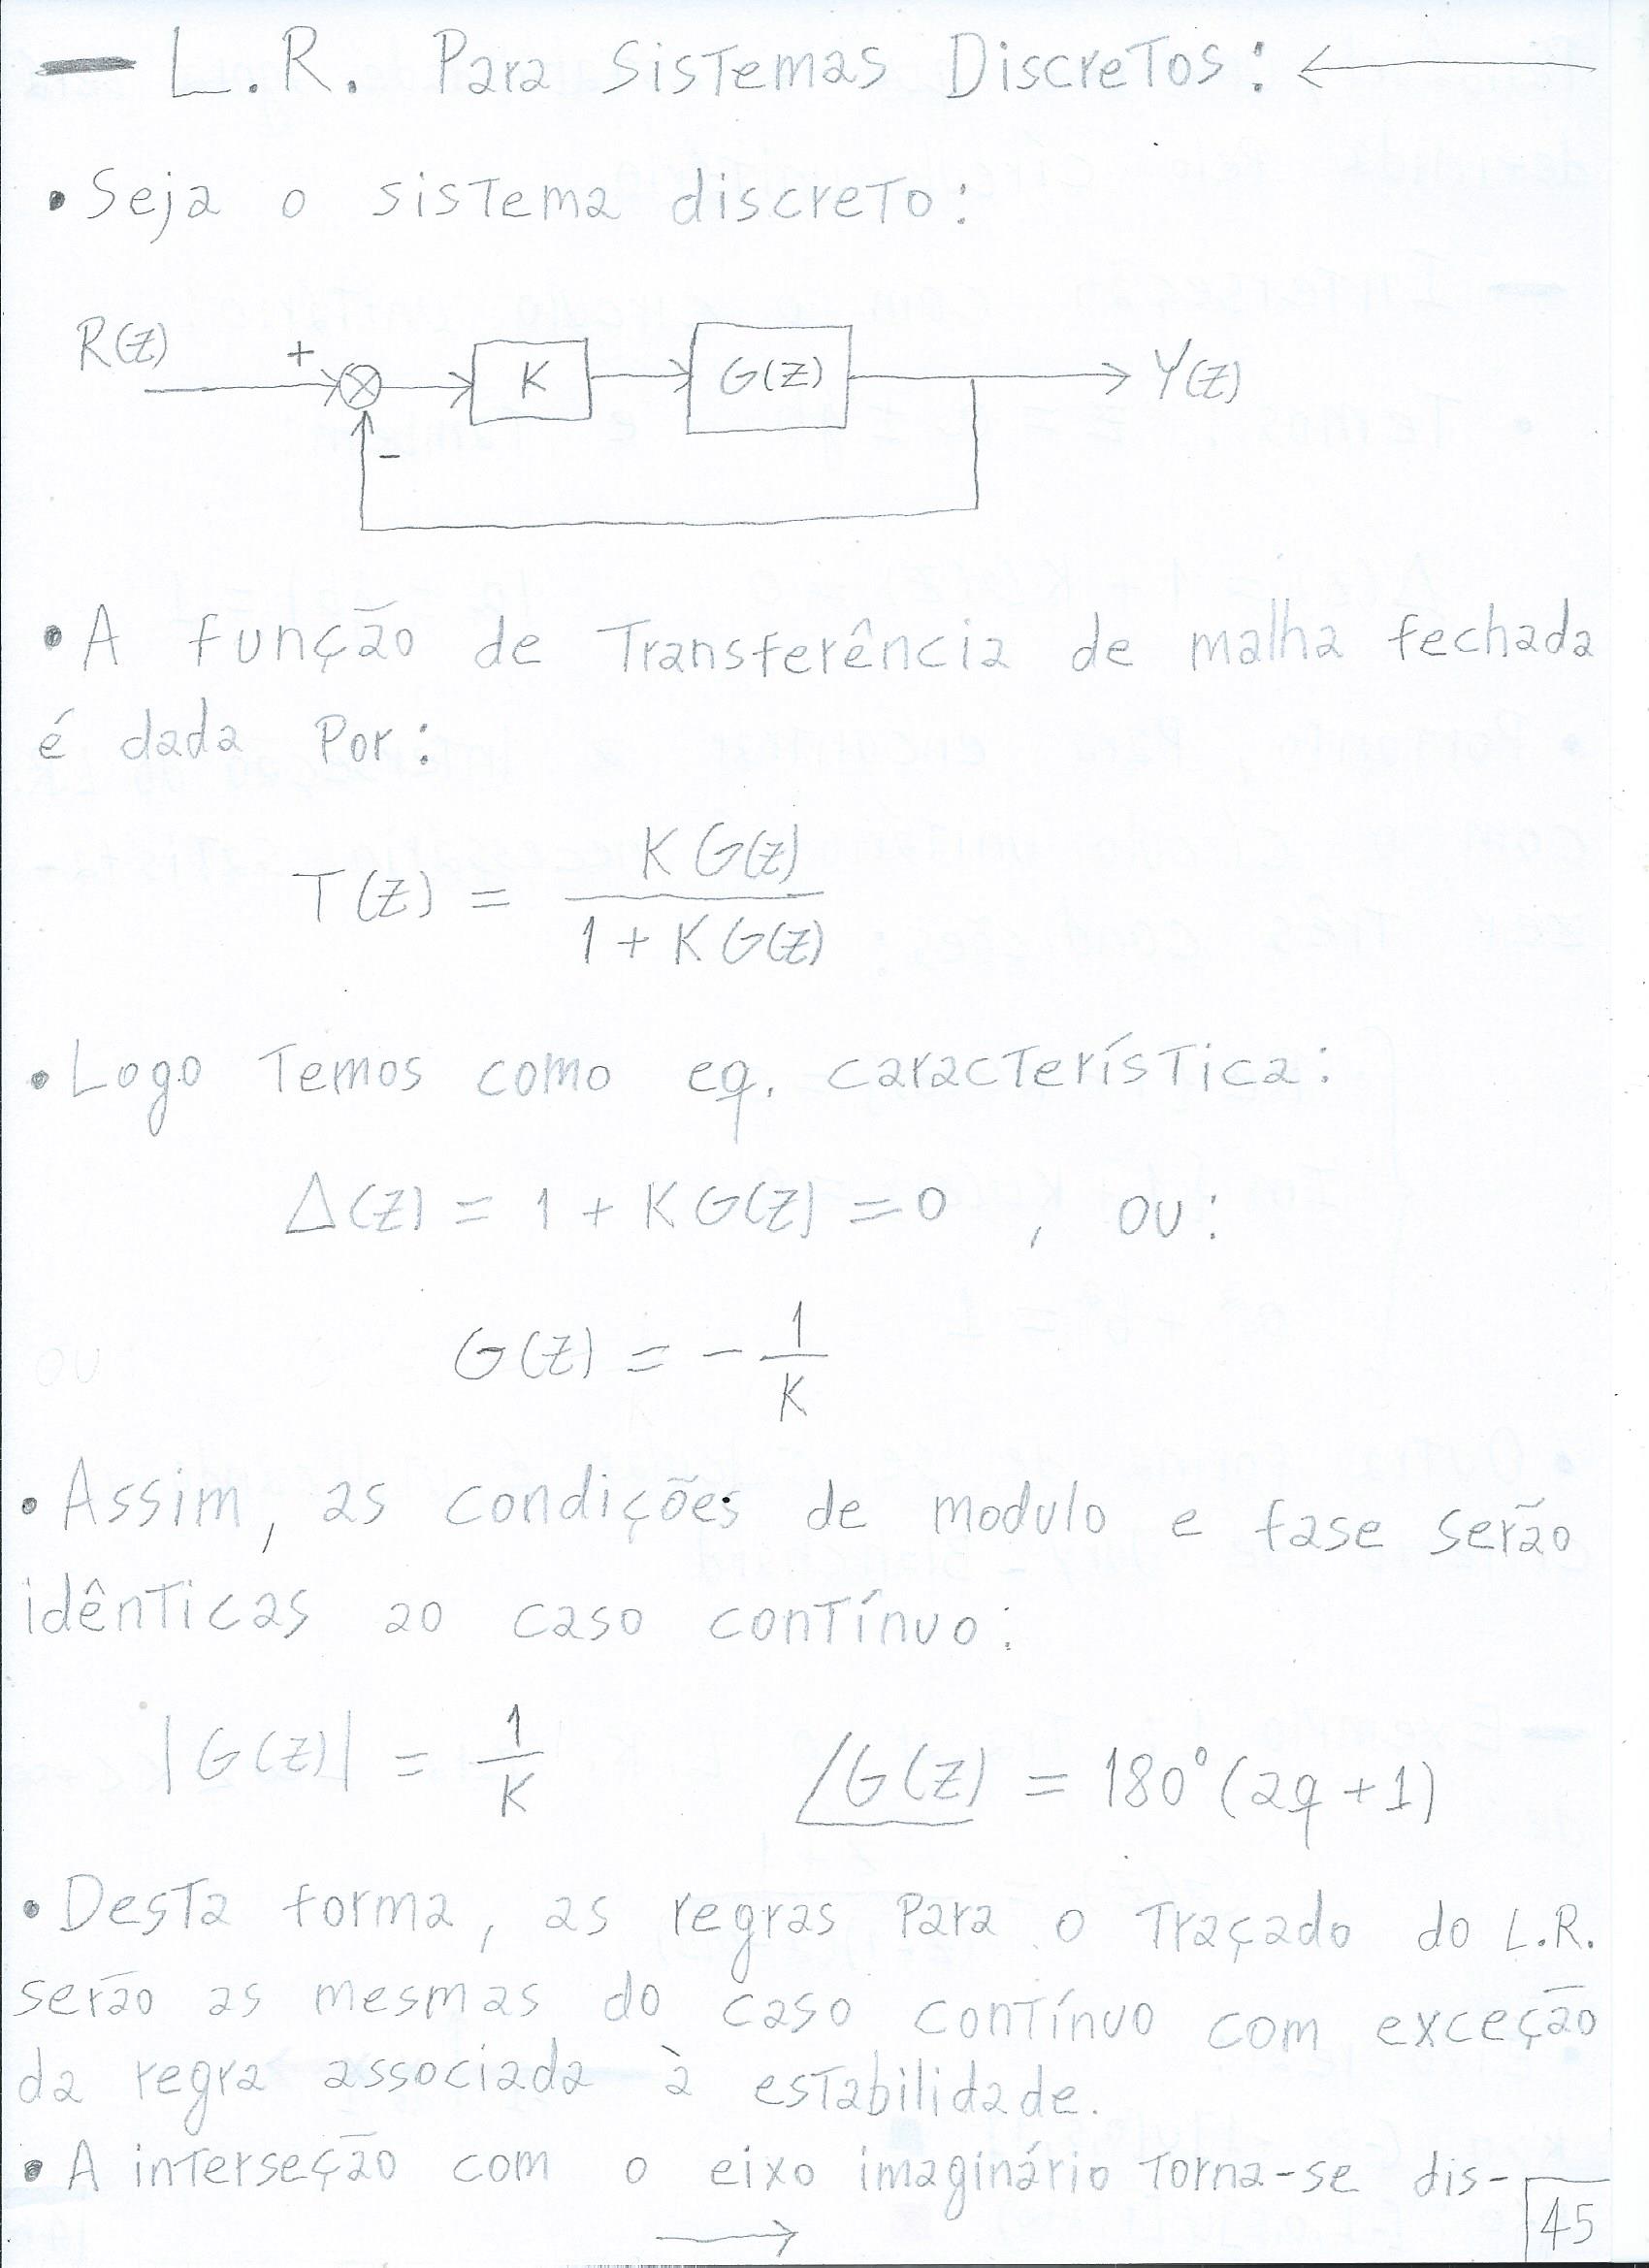 — L.R. Para Sistemas Discretos: ←
• Seja o sistema discreto:
R(z) + K G(z) Y(z)
-
• A função de Transferência de malha fechada
é dada Por:
T(z) = K G(z) / 1 + K G(z)
• Logo Temos como eq. característica:
Δ(z) = 1 + K G(z) = 0 , ou:
G(z) = - 1/K
• Assim, as condições de modulo e fase serão
idênticas ao caso contínuo:
|G(z)| = 1/K ∠G(z) = 180°(2q + 1)
• Desta forma, as regras Para o Traçado do L.R.
serão as mesmas do caso contínuo com exceção
da regra associada à estabilidade.
• A interseção com o eixo imaginário Torna-se dis-
→ 45